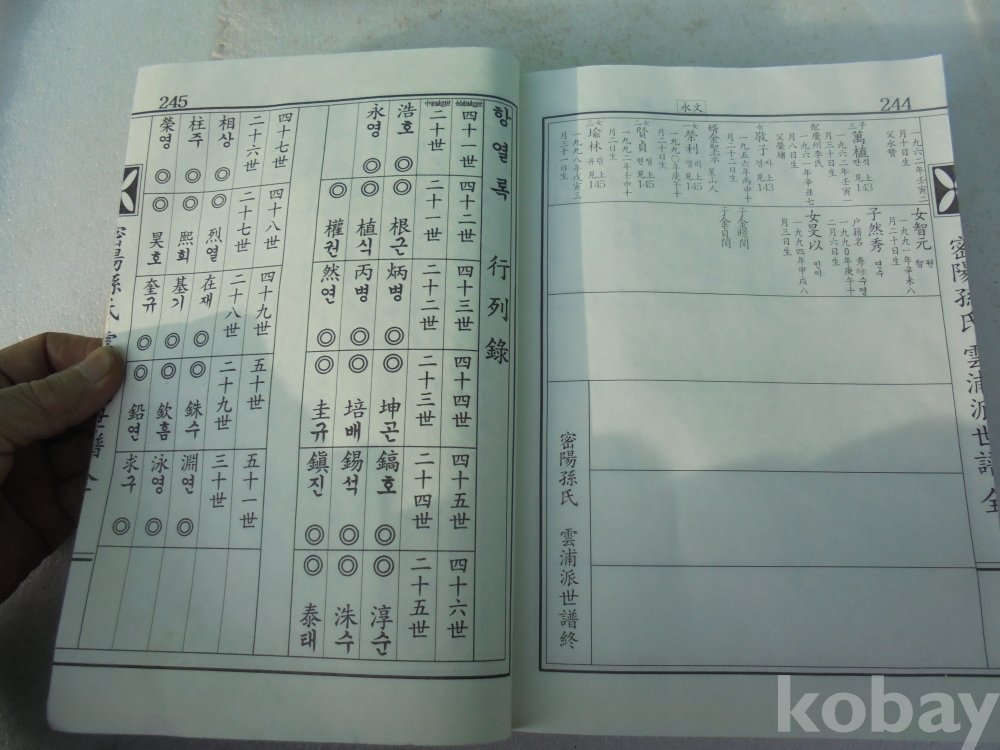 244
永文
密陽孫氏 雲浦派世譜 全
一九六二年壬寅二
月十日生
父永贊
子三 萬植 만식 上見143
一九六二年壬寅一
月三十日生
配慶州李氏
一九六一年辛丑七
月八日生
女 敬子 경자 上見143
一九五六年丙申十
月二十二日生
婿金聖宗 星山人
女一 榮利 영리 上見145
一九九〇年庚午十
月二十日生
女二 賢貞 현정 上見145
一九九二年壬申十
月二日生
女三 瑜林 유림 上見145
一九九八年戊寅三
月三十一日生
女智元
一九九一年辛未八
月二十日生
子然秀 연수
戶籍名 秀詠수영
一九九〇年庚午十
二月六日生
女旻以 민이
一九九四年甲戌八
月三日生
子金時閏
子金貞閏
密陽孫氏 雲浦派世譜終
245
항열록 行列錄
四十一世 四十二世 四十三世 四十四世 四十五世 四十六世
二十世 二十一世 二十二世 二十三世 二十四世 二十五世
浩호◎ ◎根근 炳병◎ ◎坤곤 鎬호◎ ◎淳순
永영◎ ◎植식 丙병◎ ◎培배 錫석◎ ◎洙수
◎權권 然연◎ ◎圭규 鎭진◎ ◎泰태
四十七世 四十八世 四十九世 五十世 五十一世
二十六世 二十七世 二十八世 二十九世 三十世
相상◎ ◎烈열 在재◎ ◎銖수 淵연◎
柱주◎ ◎熙희 基기◎ ◎欽흠 泳영◎
榮영◎ ◎昊호 奎규◎ ◎鉛연 求구◎
密陽孫氏
kobay